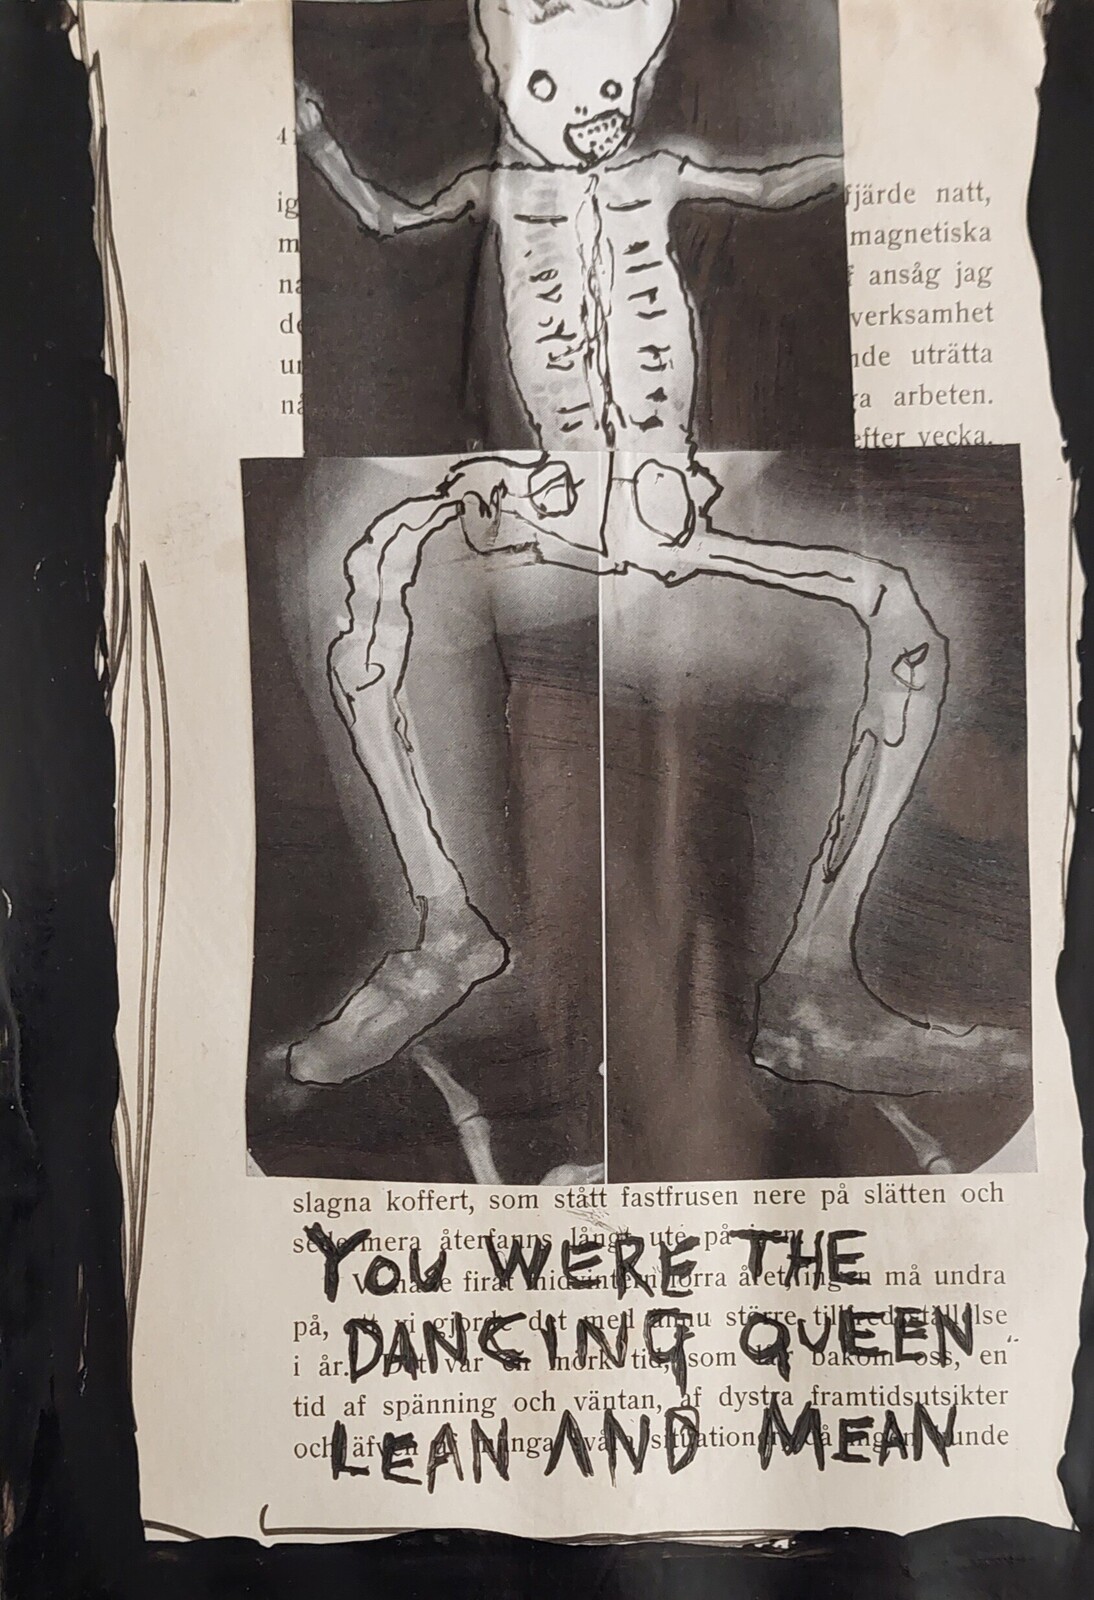 4
ig
m
na
de
un
nå
fjärde natt,
magnetiska
ansåg jag
verksamhet
nde uträtta
ga arbeten.
efter vecka.
slagna koffert, som stått fastfrusen nere på slätten och
sedermera återfanns långt ute på isen.
firat midvintern förra året, ingen må undra
på, att vi gjorde det med ännu större tillfredsställelse
i år. Det var en mörk tid, som låg bakom oss, en
tid af spänning och väntan, af dystra framtidsutsikter
och äfven af många svåra situationer, då ingen kunde
YOU WERE THE
DANCING QUEEN
LEAN AND MEAN